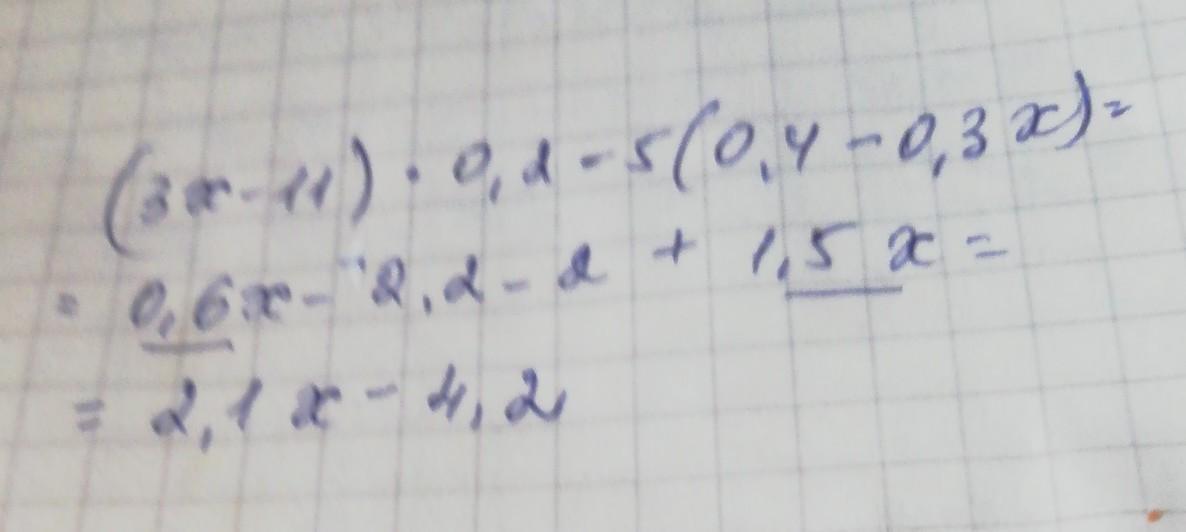 (3x-11)·0,2-5(0,4-0,3x)=
=0,6x-2,2-2+1,5x=
=2,1x-4,2